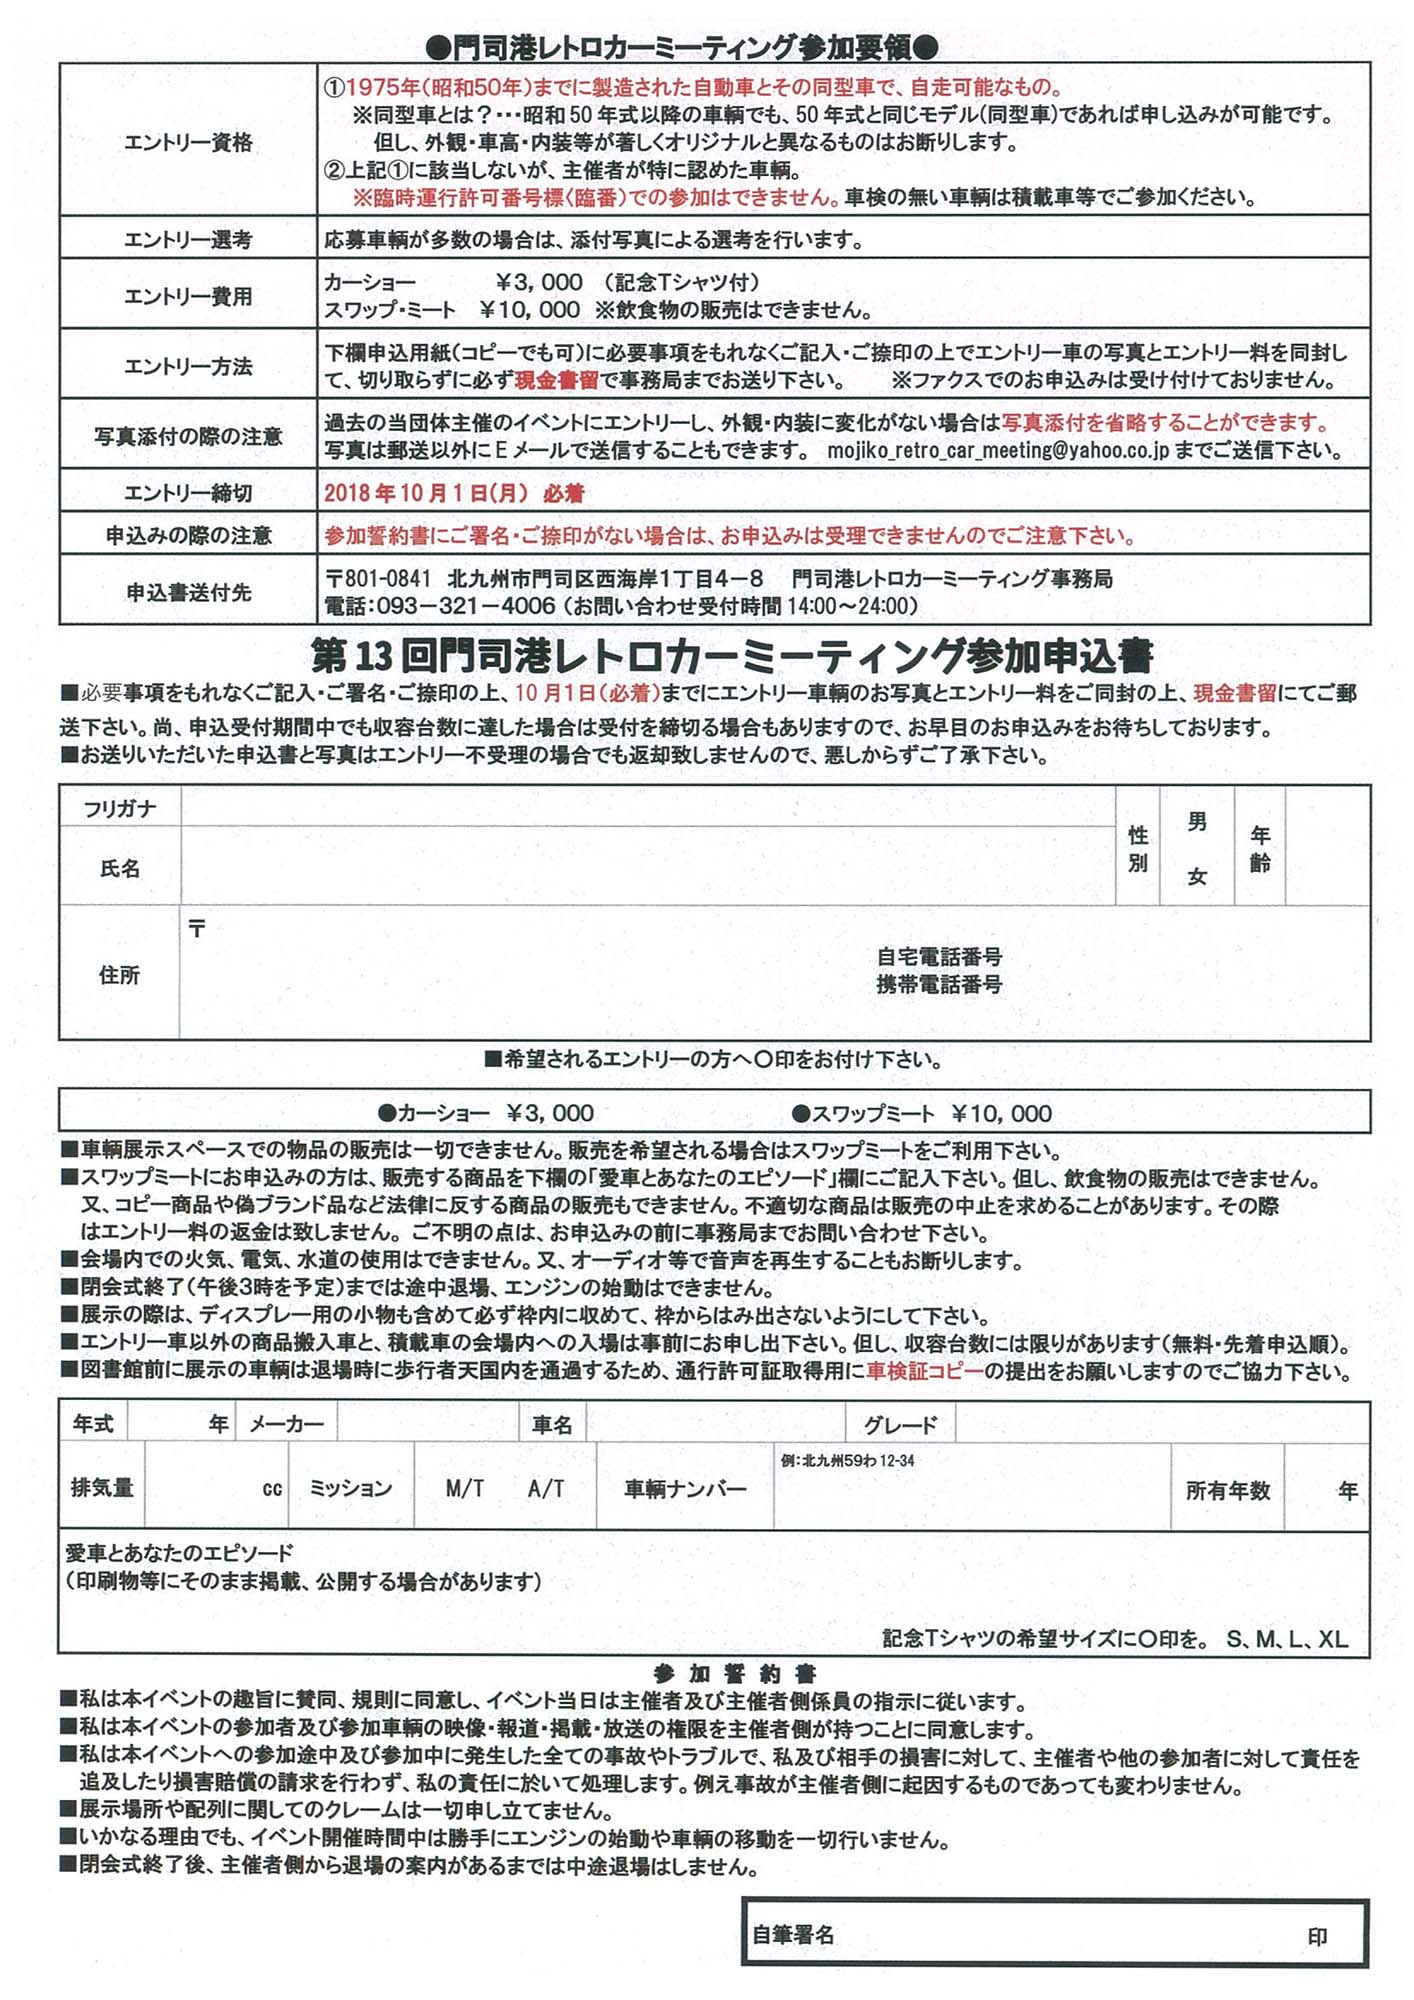 ●門司港レトロカーミーティング参加要領●
エントリー資格
①1975年(昭和50年)までに製造された自動車とその同型車で、自走可能なもの。
※同型車とは？･･･昭和50年式以降の車輌でも、50年式と同じモデル(同型車)であれば申し込みが可能です。
但し、外観・車高・内装等が著しくオリジナルと異なるものはお断りします。
②上記①に該当しないが、主催者が特に認めた車輌。
※臨時運行許可番号標〈臨番〉での参加はできません。車検の無い車輌は積載車等でご参加ください。
エントリー選考
応募車輌が多数の場合は、添付写真による選考を行います。
エントリー費用
カーショー ￥3，000 （記念Tシャツ付）
スワップ・ミート ￥10，000 ※飲食物の販売はできません。
エントリー方法
下欄申込用紙(コピーでも可)に必要事項をもれなくご記入・ご捺印の上でエントリー車の写真とエントリー料を同封し
て、切り取らずに必ず現金書留で事務局までお送り下さい。 ※ファクスでのお申込みは受け付けておりません。
写真添付の際の注意
過去の当団体主催のイベントにエントリーし、外観・内装に変化がない場合は写真添付を省略することができます。
写真は郵送以外にEメールで送信することもできます。 mojiko_retro_car_meeting@yahoo.co.jp までご送信下さい。
エントリー締切
2018年10月1日(月) 必着
申込みの際の注意
参加誓約書にご署名・ご捺印がない場合は、お申込みは受理できませんのでご注意下さい。
申込書送付先
〒801-0841 北九州市門司区西海岸1丁目4－8 門司港レトロカーミーティング事務局
電話：093－321－4006 (お問い合わせ受付時間14:00～24:00)
第13回門司港レトロカーミーティング参加申込書
■必要事項をもれなくご記入・ご署名・ご捺印の上、10月1日(必着)までにエントリー車輌のお写真とエントリー料をご同封の上、現金書留にてご郵
送下さい。尚、申込受付期間中でも収容台数に達した場合は受付を締切る場合もありますので、お早目のお申込みをお待ちしております。
■お送りいただいた申込書と写真はエントリー不受理の場合でも返却致しませんので、悪しからずご了承下さい。
フリガナ
氏名
性別
男
女
年齢
住所
〒
自宅電話番号
携帯電話番号
■希望されるエントリーの方へ○印をお付け下さい。
●カーショー ￥3，000 ●スワップミート ￥10，000
■車輌展示スペースでの物品の販売は一切できません。販売を希望される場合はスワップミートをご利用下さい。
■スワップミートにお申込みの方は、販売する商品を下欄の「愛車とあなたのエピソード」欄にご記入下さい。但し、飲食物の販売はできません。
又、コピー商品や偽ブランド品など法律に反する商品の販売もできません。不適切な商品は販売の中止を求めることがあります。その際
はエントリー料の返金は致しません。ご不明の点は、お申込みの前に事務局までお問い合わせ下さい。
■会場内での火気、電気、水道の使用はできません。又、オーディオ等で音声を再生することもお断りします。
■閉会式終了(午後3時を予定)までは途中退場、エンジンの始動はできません。
■展示の際は、ディスプレー用の小物も含めて必ず枠内に収めて、枠からはみ出さないようにして下さい。
■エントリー車以外の商品搬入車と、積載車の会場内への入場は事前にお申し出下さい。但し、収容台数には限りがあります(無料・先着申込順)。
■図書館前に展示の車輌は退場時に歩行者天国内を通過するため、通行許可証取得用に車検証コピーの提出をお願いしますのでご協力下さい。
年式 年 メーカー 車名 グレード
排気量 cc ミッション M/T A/T 車輌ナンバー 例：北九州59わ12-34 所有年数 年
愛車とあなたのエピソード
(印刷物等にそのまま掲載、公開する場合があります)
記念Tシャツの希望サイズに○印を。 S、M、L、XL
参加誓約書
■私は本イベントの趣旨に賛同、規則に同意し、イベント当日は主催者及び主催者側係員の指示に従います。
■私は本イベントの参加者及び参加車輌の映像・報道・掲載・放送の権限を主催者側が持つことに同意します。
■私は本イベントへの参加途中及び参加中に発生した全ての事故やトラブルで、私及び相手の損害に対して、主催者や他の参加者に対して責任を
追及したり損害賠償の請求を行わず、私の責任に於いて処理します。例え事故が主催者側に起因するものであっても変わりません。
■展示場所や配列に関してのクレームは一切申し立てません。
■いかなる理由でも、イベント開催時間中は勝手にエンジンの始動や車輌の移動を一切行いません。
■閉会式終了後、主催者側から退場の案内があるまでは中途退場はしません。
自筆署名 印